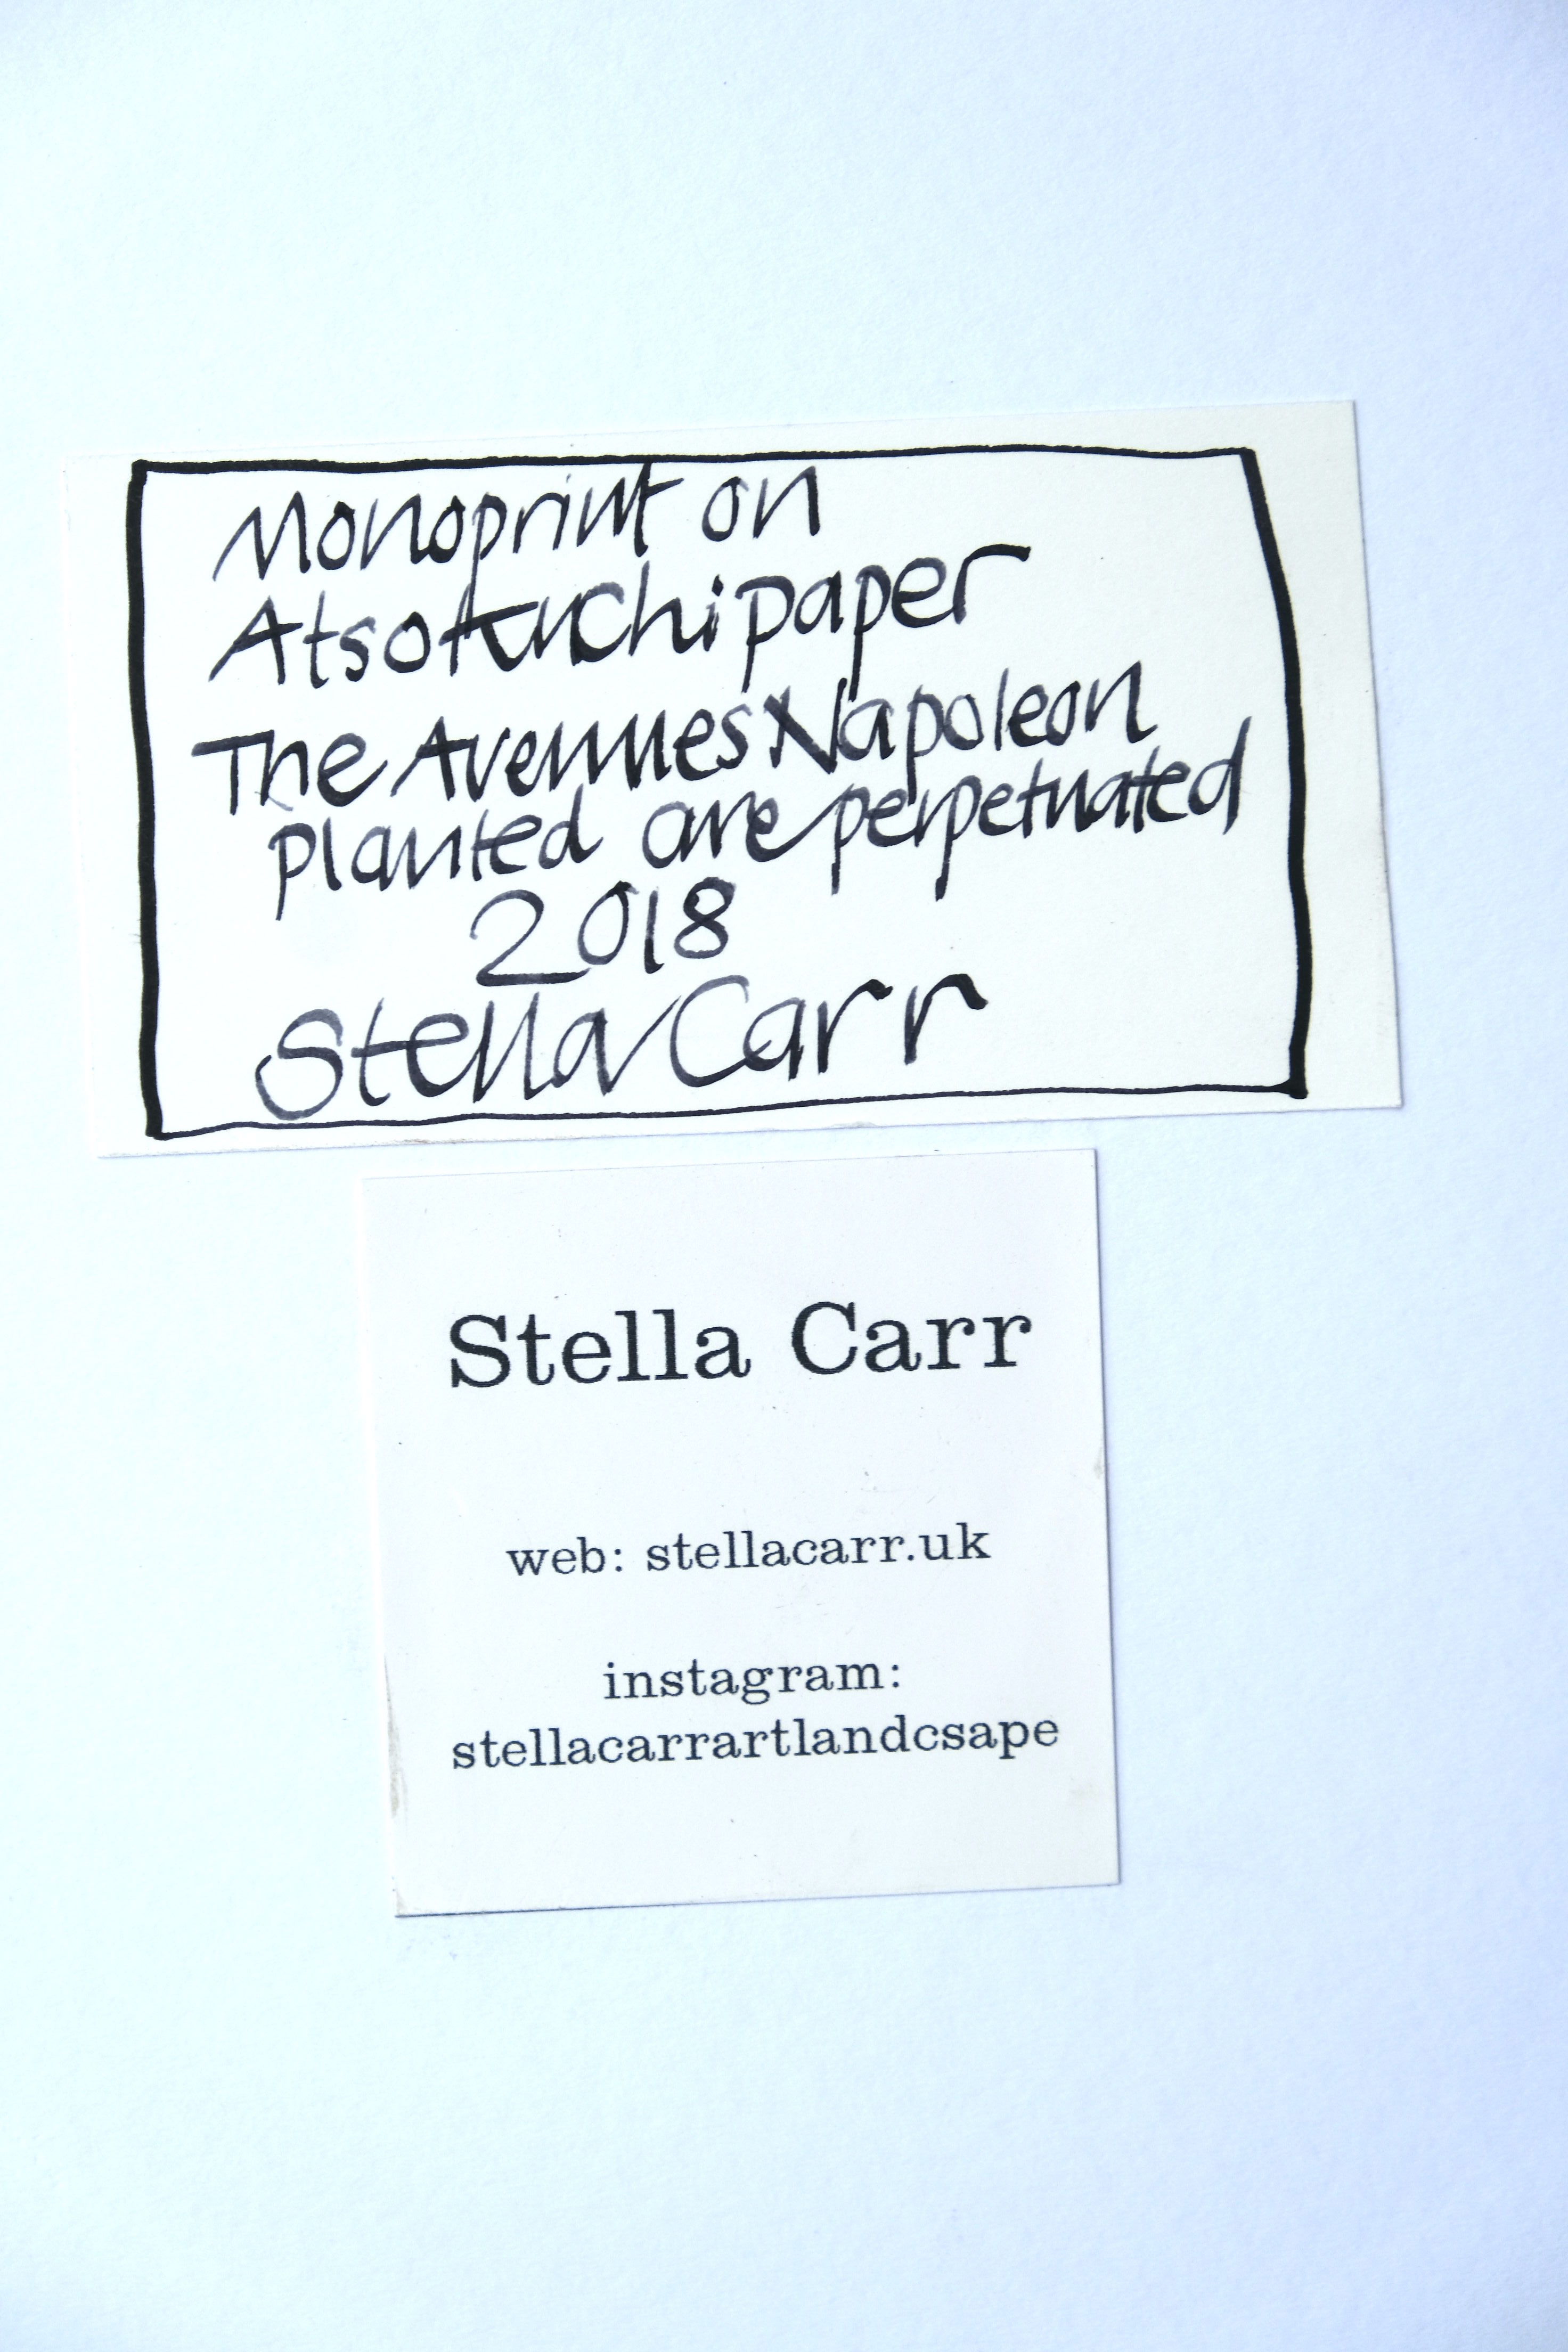 Monoprint on
Atsokuchi paper
The Avenues Napoleon
planted are perpetuated
2018
Stella Carr
Stella Carr
web: stellacarr.uk
instagram:
stellacarrartlandcsape